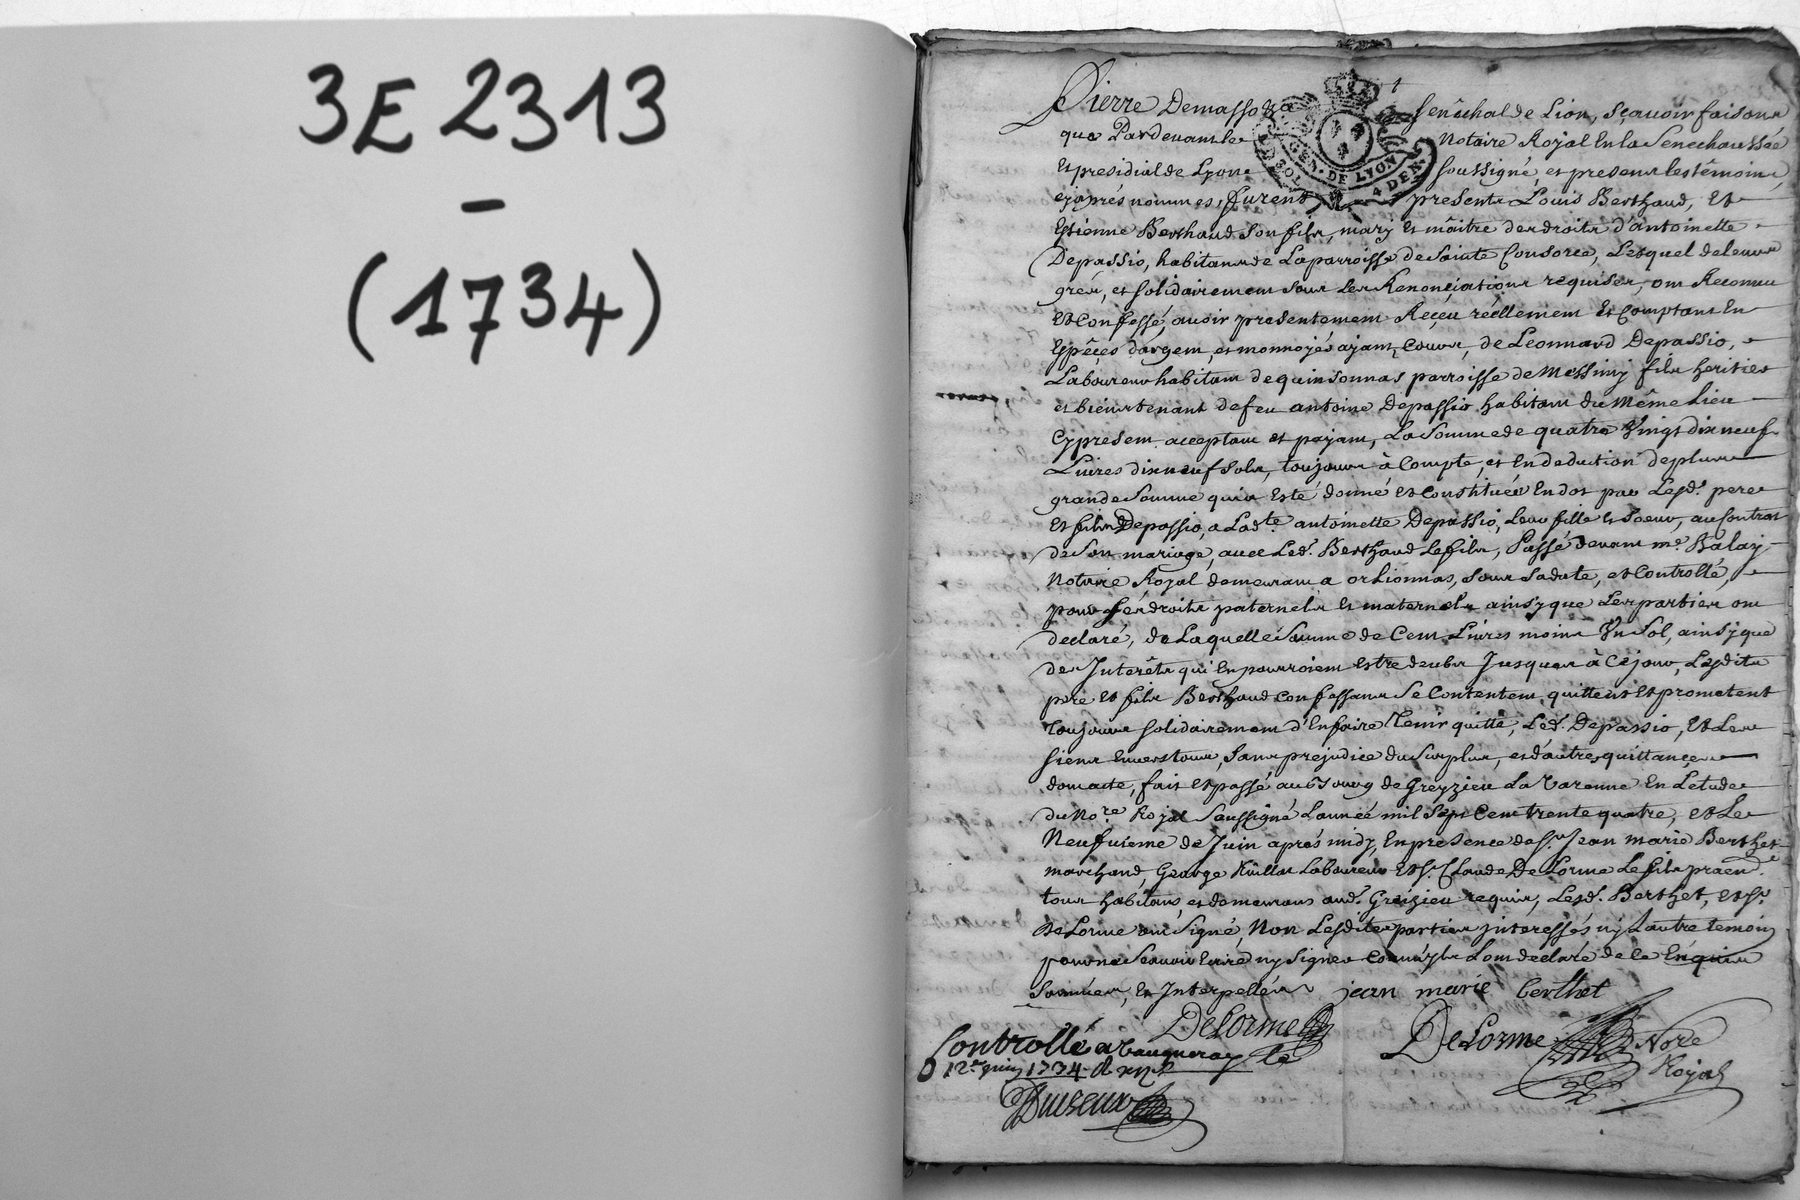 3E 2313
-
(1734)
Pierre Demasso Senêchal de Lion, sçavoir faisons
que Pardevant le Notaire Royal En la Senechaussée
Et presidial de Lyon soussigné, et presens les têmoins
cy aprés nommes, furent presents Louis Berthaud, Et
Estienne Berthaud Son fils, mary et maître des droits d'antoinette
Depassio, habitans de La parroisse de Sainte Consorce, Lesquel de leurs
grés, et solidairement sous les Renonciations requises, ont Reconnu
Et Confessé, avoir presentement Reçeu réellement Et Comptant En
Espêçes d'argent, et monnoyés ayant, Cours, de Leonnard Depassio,
Laboureur habitant de quinsonnas parroisse de Messimy fils heritier
et bien tenant de feu antoine Depassio habitant du Même Lieu
Cy present acceptant et payant, La Somme de quatre Vingt dix neuf
Livres dix neuf Sols, toujours à Compte, et En deduction de plus
grande Somme qui a Esté donné et Constituée En dot par Lesd. pere
Et fils Depassio, a Lad.te antoinette Depassio, Leur fille Et Soeur, au Contrat
de Son mariage, avec Led. Berthaud Le fils, Passé devant me. Balay
Notaire Royal demeurant a orLionnas, Sous Sa date, et Controllé,
pour Ses droits paternels Et maternels ainsy que Les parties ont
declaré, de Laquelle Somme de Cent Livres moins Un Sol, ainsy que
des Interêts qui En pourroient Estre deubs Jusques à Ce jour, Lesdits
pere et fils Berthaud Confessans Se Contentent, quittent et promettent
toujours solidairement d'En faire Tenir quitte, Led. Depassio, Et Les
siens Envers tous, Sans prejudice du Surplus, et d'autres quittances
dont acte, fait et passé au Bourg de Greyzieu La Varenne En L'etude
du No.re Royal Soussigné L'année mil Sept Cent trente quatre, et Le
Neufvieme de Juin aprés midy, En presence de Sr. Jean marie Berthet
marchand, George Laboureur Et Sr. Claude De Lorme Le fils praen.
tous habitans, et demeurans aud. Greizieu requis, Lesd. Berthet, et Sr.
De Lorme ont Signé, Non Lesdites parties interessés ny L'autre temoin
pour ne Scavoir Ecrire ny Signer Comm'ils L'ont declaré de ce Enquis
Sommés, Et Interpellés jean marie berthet
DeLorme DeLorme Nore
Royal
Controllé a Vaugneray le
12e. juin 1734
GEN. DE LYON
SOL 4 DEN.